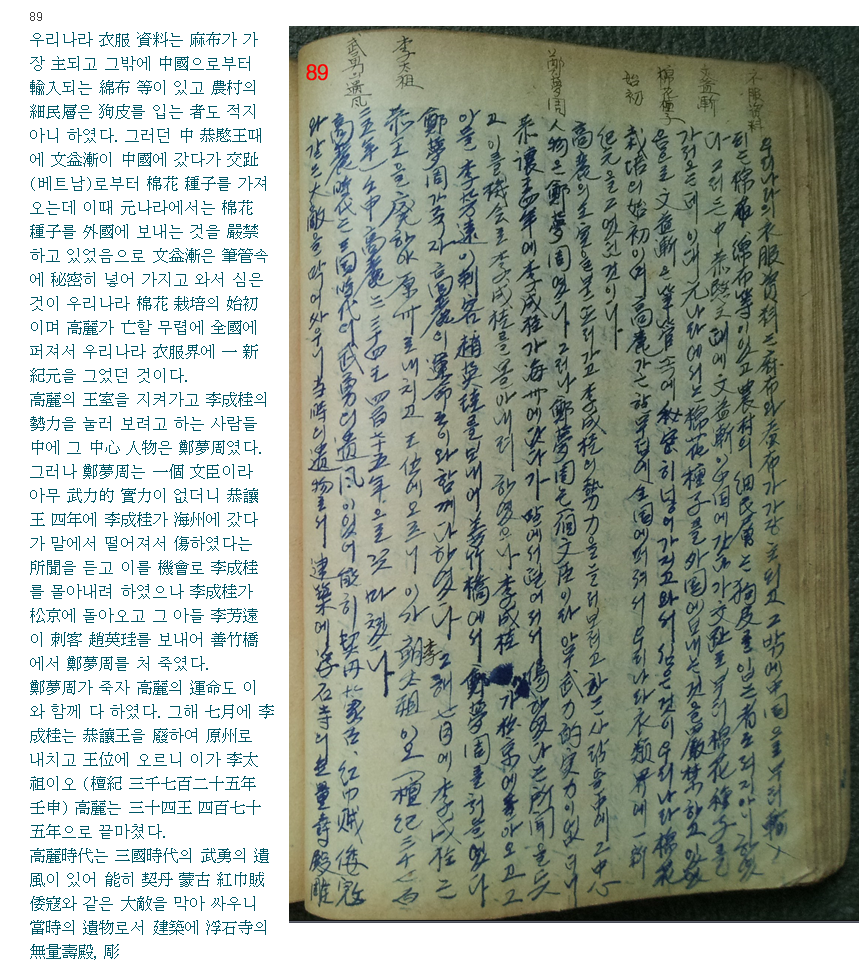 89
우리나라 衣服 資料는 麻布가 가
장 主되고 그밖에 中國으로부터
輸入되는 綿布 等이 있고 農村의
細民層은 狗皮를 입는 者도 적지
아니 하였다. 그러던 中 恭愍王때
에 文益漸이 中國에 갔다가 交趾
(베트남)로부터 棉花 種子를 가져
오는데 이때 元나라에서는 棉花
種子를 外國에 보내는 것을 嚴禁
하고 있었음으로 文益漸은 筆管속
에 秘密히 넣어 가지고 와서 심은
것이 우리나라 棉花 栽培의 始初
이며 高麗가 亡할 무렵에 全國에
퍼져서 우리나라 衣服界에 一 新
紀元을 그었던 것이다.
高麗의 王室을 지켜가고 李成桂의
勢力을 눌러 보려고 하는 사람들
中에 그 中心 人物은 鄭夢周였다.
그러나 鄭夢周는 一個 文臣이라
아무 武力的 實力이 없더니 恭讓
王 四年에 李成桂가 海州에 갔다
가 말에서 떨어져서 傷하였다는
所聞을 듣고 이를 機會로 李成桂
를 몰아내려 하였으나 李成桂가
松京에 돌아오고 그 아들 李芳遠
이 刺客 趙英珪를 보내어 善竹橋
에서 鄭夢周를 처 죽였다.
鄭夢周가 죽자 高麗의 運命도 이
와 함께 다 하였다. 그해 七月에 李
成桂는 恭讓王을 廢하여 原州로
내치고 王位에 오르니 이가 李太
祖이오 (檀紀 三千七百二十五年
壬申) 高麗는 三十四王 四百七十
五年으로 끝마쳤다.
高麗時代는 三國時代의 武勇의 遺
風이 있어 能히 契丹 蒙古 紅巾賊
倭寇와 같은 大敵을 막아 싸우니
當時의 遺物로서 建築에 浮石寺의
無量壽殿, 彫
89
衣服資料
文益漸
棉花種子
始初
鄭夢周
李太祖
武勇의遺風
우리나라의 衣服資料는 麻布와 布가 가장 主되고 그밖에 中國으로부터 輸入
되는 綿布等이 있고 農村의 細民層은 狗皮를 입는 者도 적지아니 하였
다 그러든 中 恭愍王때에 文益漸이 中國에 갔다가 交趾로부터 棉花種子를
가져오는데 이때 元나라에서는 棉花種子를 外國에 보내는 것을 嚴禁하고 있었
음으로 文益漸은 筆管속에 秘密히 넣어가지고 와서 심은 것이 우리나라 棉花
栽培의 始初이며 高麗가 亡할 무렵에 全國에 퍼져서 우리나라 衣類界에 一新
紀元을 그었던 것이다
高麗의 王室을 李成桂의 勢力을 눌러보려고 하는 사람들 中에 그 中心
人物은 鄭夢周였다 그러나 鄭夢周는 一個文臣이라 아무 武力的 實力이 없더니
恭讓王四年에 李成桂가 海州에 갔다가 말에서 떨어져서 傷하였다는 所聞을 듯
고 이를 機會로 李成桂를 몰아내려 하였으나 李成桂가 松京에 돌아오고 그
아들 李芳遠이 刺客 趙英珪를 보내어 善竹橋에서 鄭夢周를 처죽였다
鄭夢周가 죽자 高麗의 運命도 이와 함께 다하였다 그해 七月에 李成桂는
恭王을 廢하야 原州로 내치고 王位에 오르니 이가 李太祖이오 (檀紀 三千七百
二十五年 壬申 高麗는 三十四王 四百七十五年으로 끝마쳤다
高麗時代는 三國時代의 武勇의 遺風이 있어 能히 契丹 蒙古 紅巾賊 倭寇
와 같은 大敵을 막어 싸우니 當時의 遺物로서 建築에 浮石寺의 無量壽殿 雕